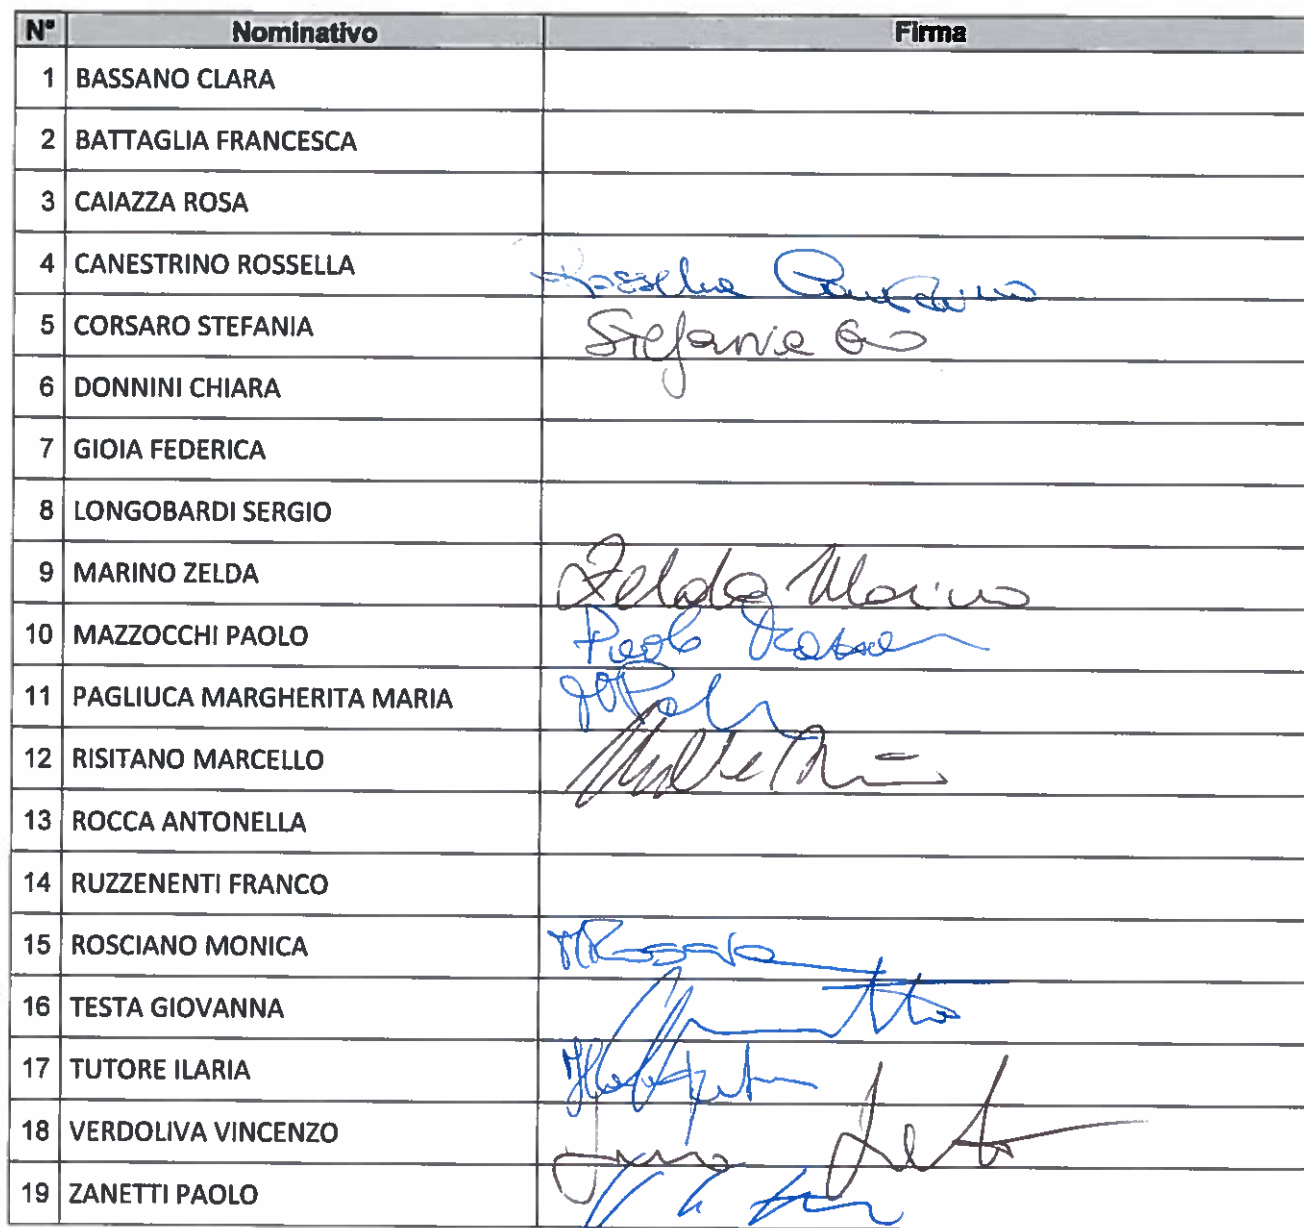 N° Nominativo Firma
1 BASSANO CLARA
2 BATTAGLIA FRANCESCA
3 CAIAZZA ROSA
4 CANESTRINO ROSSELLA Rossella Canestrino
5 CORSARO STEFANIA Stefania
6 DONNINI CHIARA
7 GIOIA FEDERICA
8 LONGOBARDI SERGIO
9 MARINO ZELDA Zelda Marino
10 MAZZOCCHI PAOLO Paolo
11 PAGLIUCA MARGHERITA MARIA
12 RISITANO MARCELLO
13 ROCCA ANTONELLA
14 RUZZENENTI FRANCO
15 ROSCIANO MONICA
16 TESTA GIOVANNA
17 TUTORE ILARIA
18 VERDOLIVA VINCENZO
19 ZANETTI PAOLO